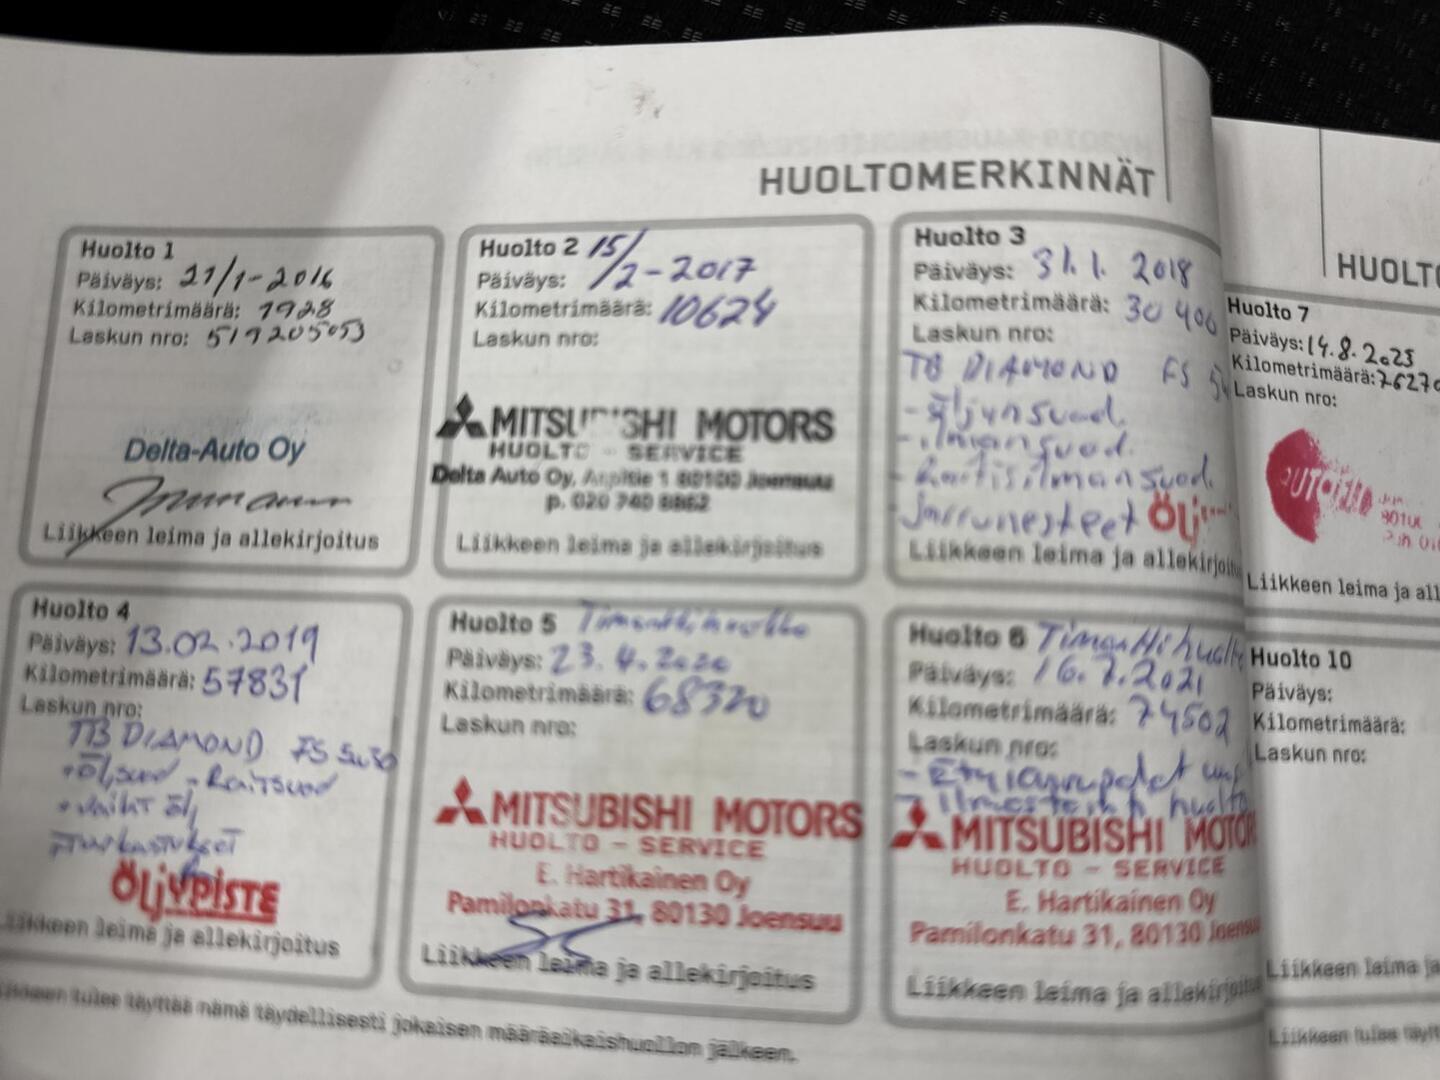 HUOLTOMERKINNÄT
Huolto 1
Päiväys: 21/1-2016
Kilometrimäärä: 1928
Laskun nro: 519205053
Delta-Auto Oy
Liikkeen leima ja allekirjoitus
Huolto 2 15/2-2017
Päiväys:
Kilometrimäärä: 10624
Laskun nro:
MITSUBISHI MOTORS
HUOLTO - SERVICE
Delta Auto Oy, 1 80100 Joensuu
p. 020 740 8862
Liikkeen leima ja allekirjoitus
Huolto 3
Päiväys: 31.1. 2018
Kilometrimäärä: 30 400
Laskun nro:
TB DIAMOND FS
- öljynsuod.
- ilmansuod.
- Raitisilmansuod.
- Jarrunesteet
Liikkeen leima ja
Huolto 4
Päiväys: 13.02.2019
Kilometrimäärä: 57831
Laskun nro:
TB DIAMOND FS 5w30
+ öljsuod - Raitsuod
+ vaiht ölj
ÖljYPISTE
ja allekirjoitus
Huolto 5
Päiväys: 23.4.2020
Kilometrimäärä: 68320
Laskun nro:
MITSUBISHI MOTORS
HUOLTO - SERVICE
E. Hartikainen Oy
Pamilonkatu 31, 80130 Joensuu
Liikkeen leima ja allekirjoitus
Huolto 6 Timanttihuolto
Päiväys: 16.7.2021
Kilometrimäärä: 74502
Laskun nro:
MITSUBISHI
HUOLTO - SERVICE
E. Hartikainen Oy
Pamilonkatu 31, 80130
Liikkeen leima ja
tulee täyttää nämä täydellisesti jokaisen määräaikaishuollon jälkeen.
HUOLTO
Huolto 7
Päiväys: 14.8.2023
Kilometrimäärä: 76270
Laskun nro:
Liikkeen leima ja all
Huolto 10
Päiväys:
Kilometrimäärä:
Laskun nro:
Liikkeen leima ja
Liikkeen tulee